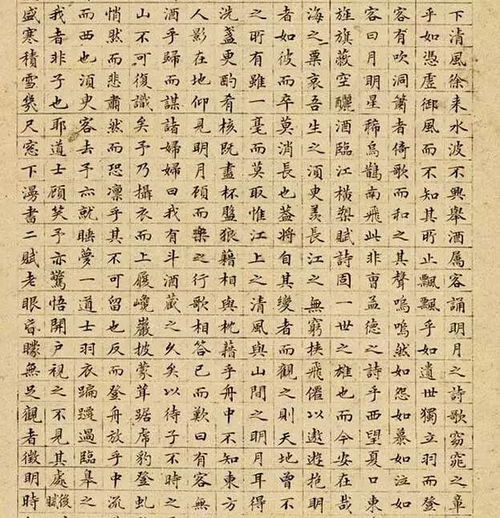 下清風徐来水波不興舉酒属客誦明月之詩歌窈窕之章
乎如憑虛御風而不知其所止飄飄乎如遺世獨立羽而登
客有吹洞簫者倚歌而和之其聲嗚嗚然如怨如慕如泣如
客曰月明星稀烏鵲南飛此非曹孟德之詩乎西望夏口東
旌旗蔽空釃酒臨江橫槊賦詩固一世之雄也而今安在哉
海之一粟哀吾生之須臾羨長江之無窮挾飛僊以遨遊抱明
者如彼而卒莫消長也蓋將自其變者而觀之則天地曾不
之所有雖一毫而莫取惟江上之清風與山間之明月耳得
洗盞更酌肴核既盡杯盤狼籍相與枕藉乎舟中不知東方
人影在地仰見明月顧而樂之行歌相答已而歎曰有客無
酒乎歸而謀諸婦婦曰我有斗酒藏之久矣以待子不時之
山不可復識矣予乃攝衣而上履巉巖披蒙茸踞虎豹登虬
悄然而悲肅然而恐凜乎其不可留也反而登舟放乎中流
而西也須臾客去予亦就睡夢一道士羽衣蹁躚過臨皋之
我者非子也耶道士顧笑予亦驚悟開戶視之不見其處後賦
盛寒積雪幾尺窓下漫書二賦老眼昏矇無足觀者徵明時